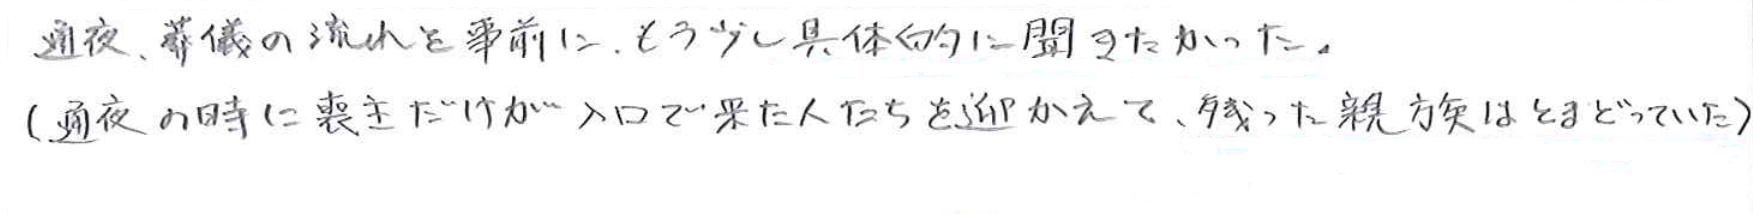 通夜、葬儀の流れを事前に、もう少し具体的に聞きたかった。
(通夜の時に喪主だけが入口で来た人たちを迎かえて、残った親族はとまどっていた)